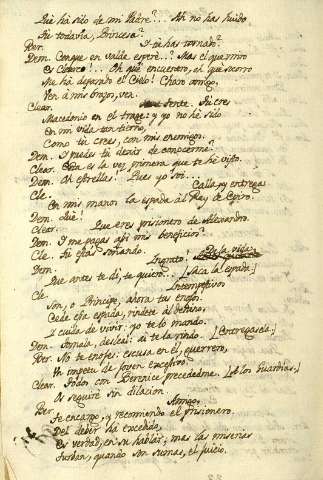 Qué há sido de mi Padre?... Ah no has huido
tu todavia, Princesa?
Ber. I tu has tornado?
Dem. Conque en valde esperé?.. Mas el que miro
es Clearco!... Oh qué encuentro, el que socorro
me há deparado el Cielo! Charo amigo,
ven á mis brazos, ven.
Clear. Tente. Tu eres
Macedonio en el trage: y yo no he sido
en mi vida tan tierno,
como tu crees, con mis enemigos.
Dem. I puedes tu dexar de conocerme?
Clear. Esta es la vez primera que te he visto.
Dem. Oh estrellas! Pues yo soi...
Cle. Calla, y entrega
en mis manos la espada al Rey de Epiro.
Dem. Qué!
Clear. Que eres prisionero de Alexandro.
Dem. I me pagas asi mis beneficios?
Cle. Tu estas soñando.
Dem. Ingrato! De la vida
que antes te dí, te quiero... [Saca la espada.]
Cle. Intempestivos
son, o Principe, ahora tus enojos.
Cede esa espada, rindete al destino,
I cuida de vivir: yo te lo mando.
Dem. Somaia, desleal: si te la rindo. [Entregasela.]
Ber. No te enojes: escusa en él, guerrero,
un impetu de joven excesivo.
Clear. Todos con Berenice precededme. [á los Guardias.]
Os seguiré sin dilacion.
Ber. Amigo,
te encargo, y recomiendo el prisionero.
Del deber há excedido,
es verdad, en su hablar; mas las miserias
turban, quando son sumas, el juicio.